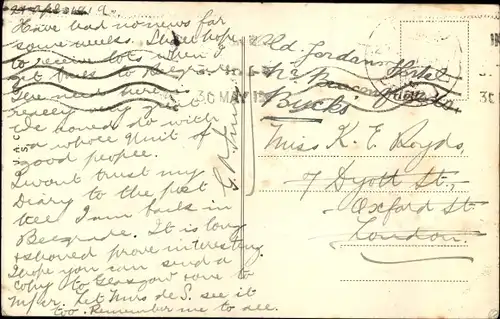 Have had no news for
some weeks. I hope
to receive lots when I
get back to Belgrade.
The need here is
very great.
We could do with
a whole Unit of
good people.
I want trust my
Diary to the post
till I am back in
Belgrade. It is long
& should prove interesting.
I hope you can send a
copy to Glasgow & one to
Let Mrs de S. see it
too. Remember me to all.
Rd. Jordans Hostel
Nr Beaconsfield
Bucks
30 MAY 19
Miss K. E. Royds,
7 Dyott St.,
Oxford St.
London.